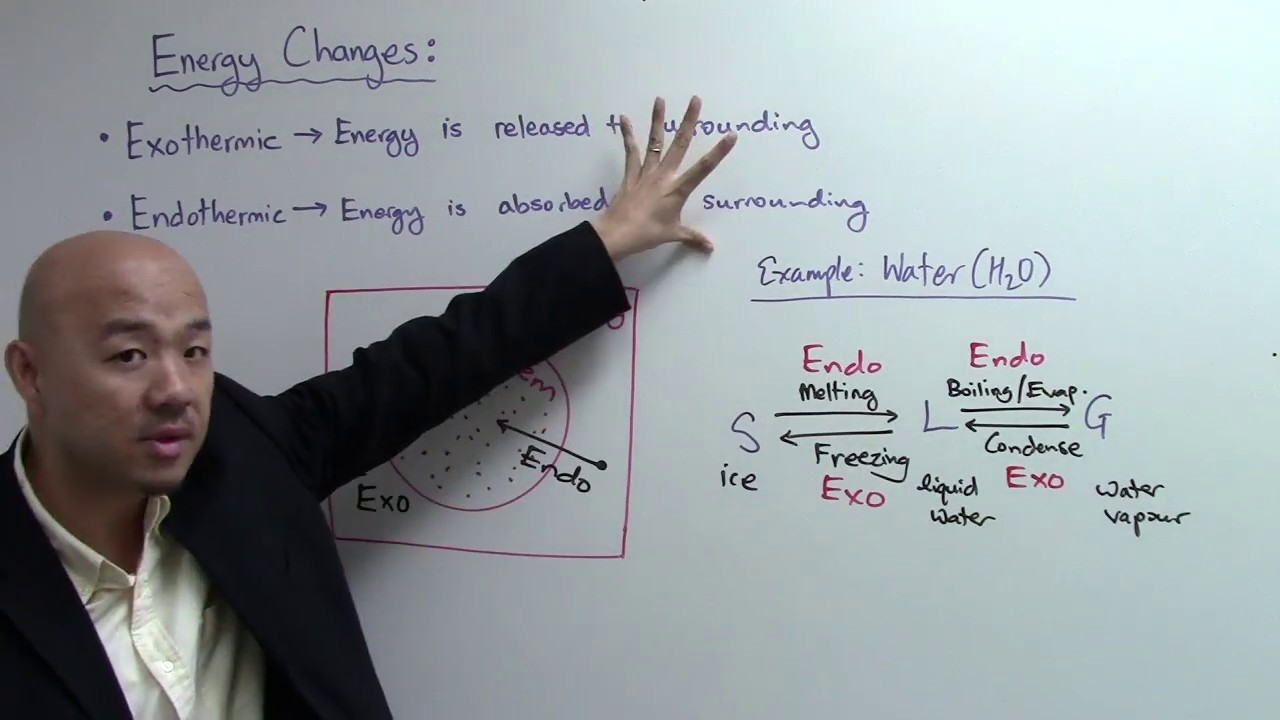 Energy Changes:
• Exothermic → Energy is released surrounding
• Endothermic → Energy is absorbed surrounding
Example: Water (H₂O)
Endo Endo
Melting Boiling/Evap.
S L G
Freezing Condense
ice Exo liquid water Exo water vapour
Endo
Exo